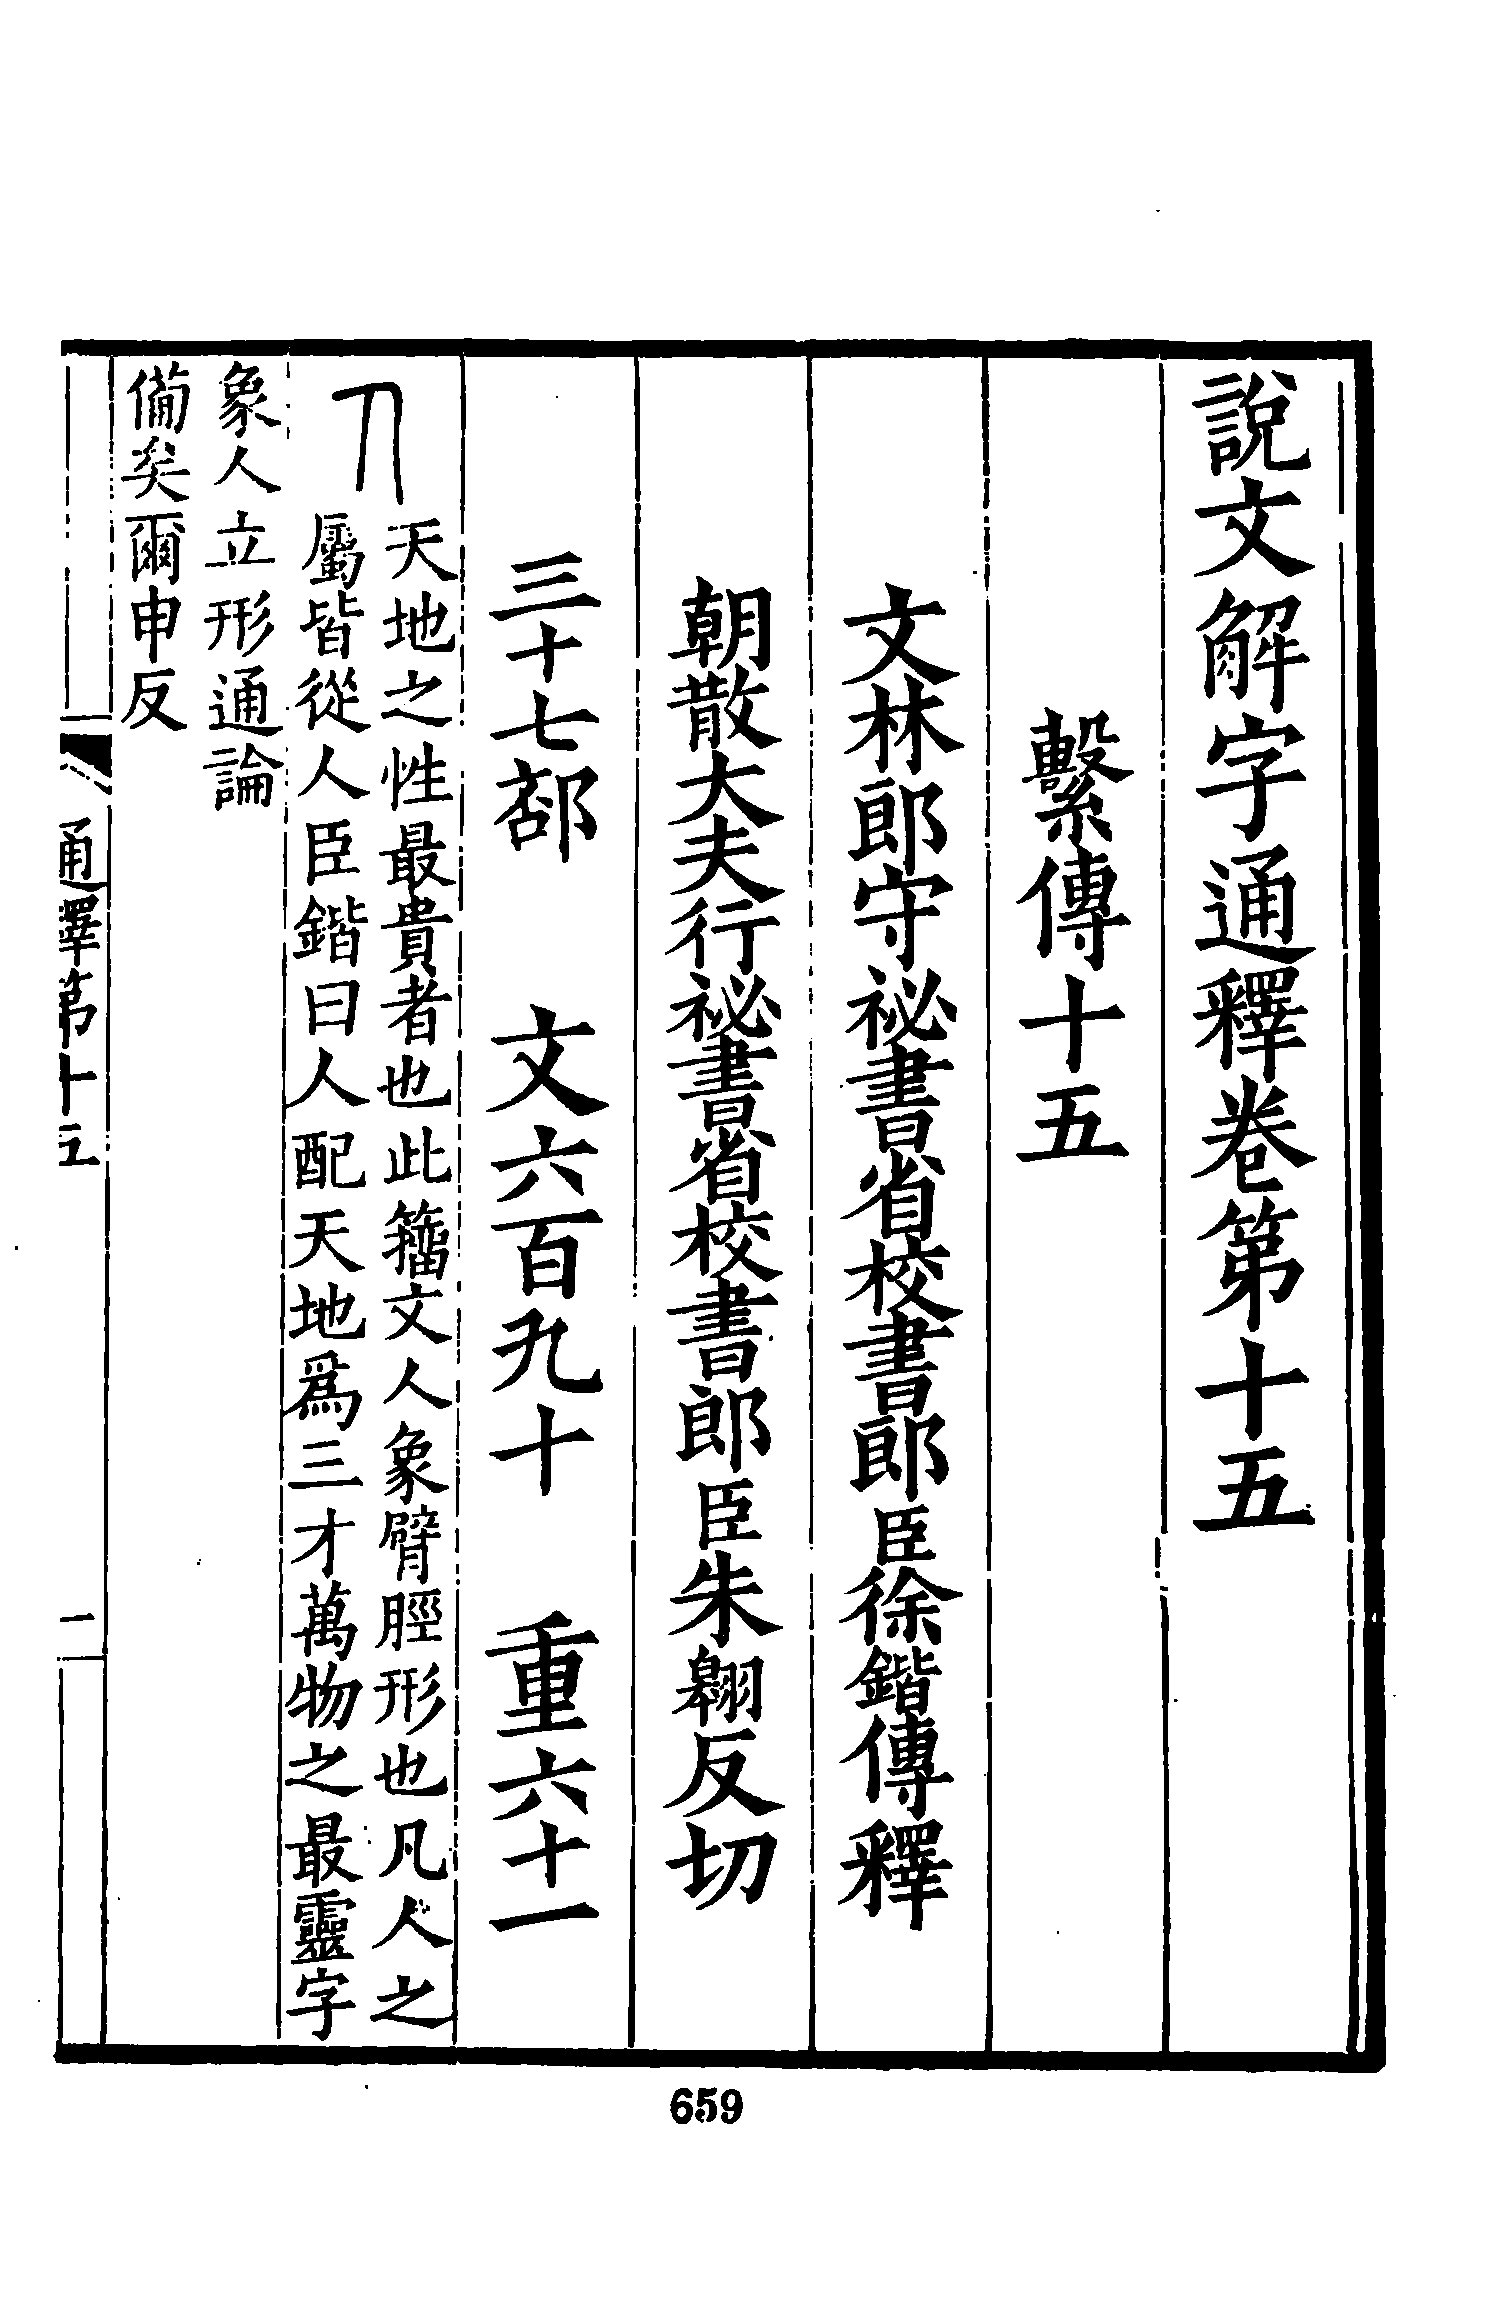 說文解字通釋卷第十五
繫傳十五
文林郎守祕書省校書郎臣徐鍇傳釋
朝散大夫行祕書省校書郎臣朱翱反切
三十七部 文六百九十 重六十一
天地之性最貴者也此籀文人象臂脛形也凡人之
屬皆從人臣鍇曰人配天地爲三才萬物之最靈字
象人立形通論
備矣爾申反
通釋第十五
一
659